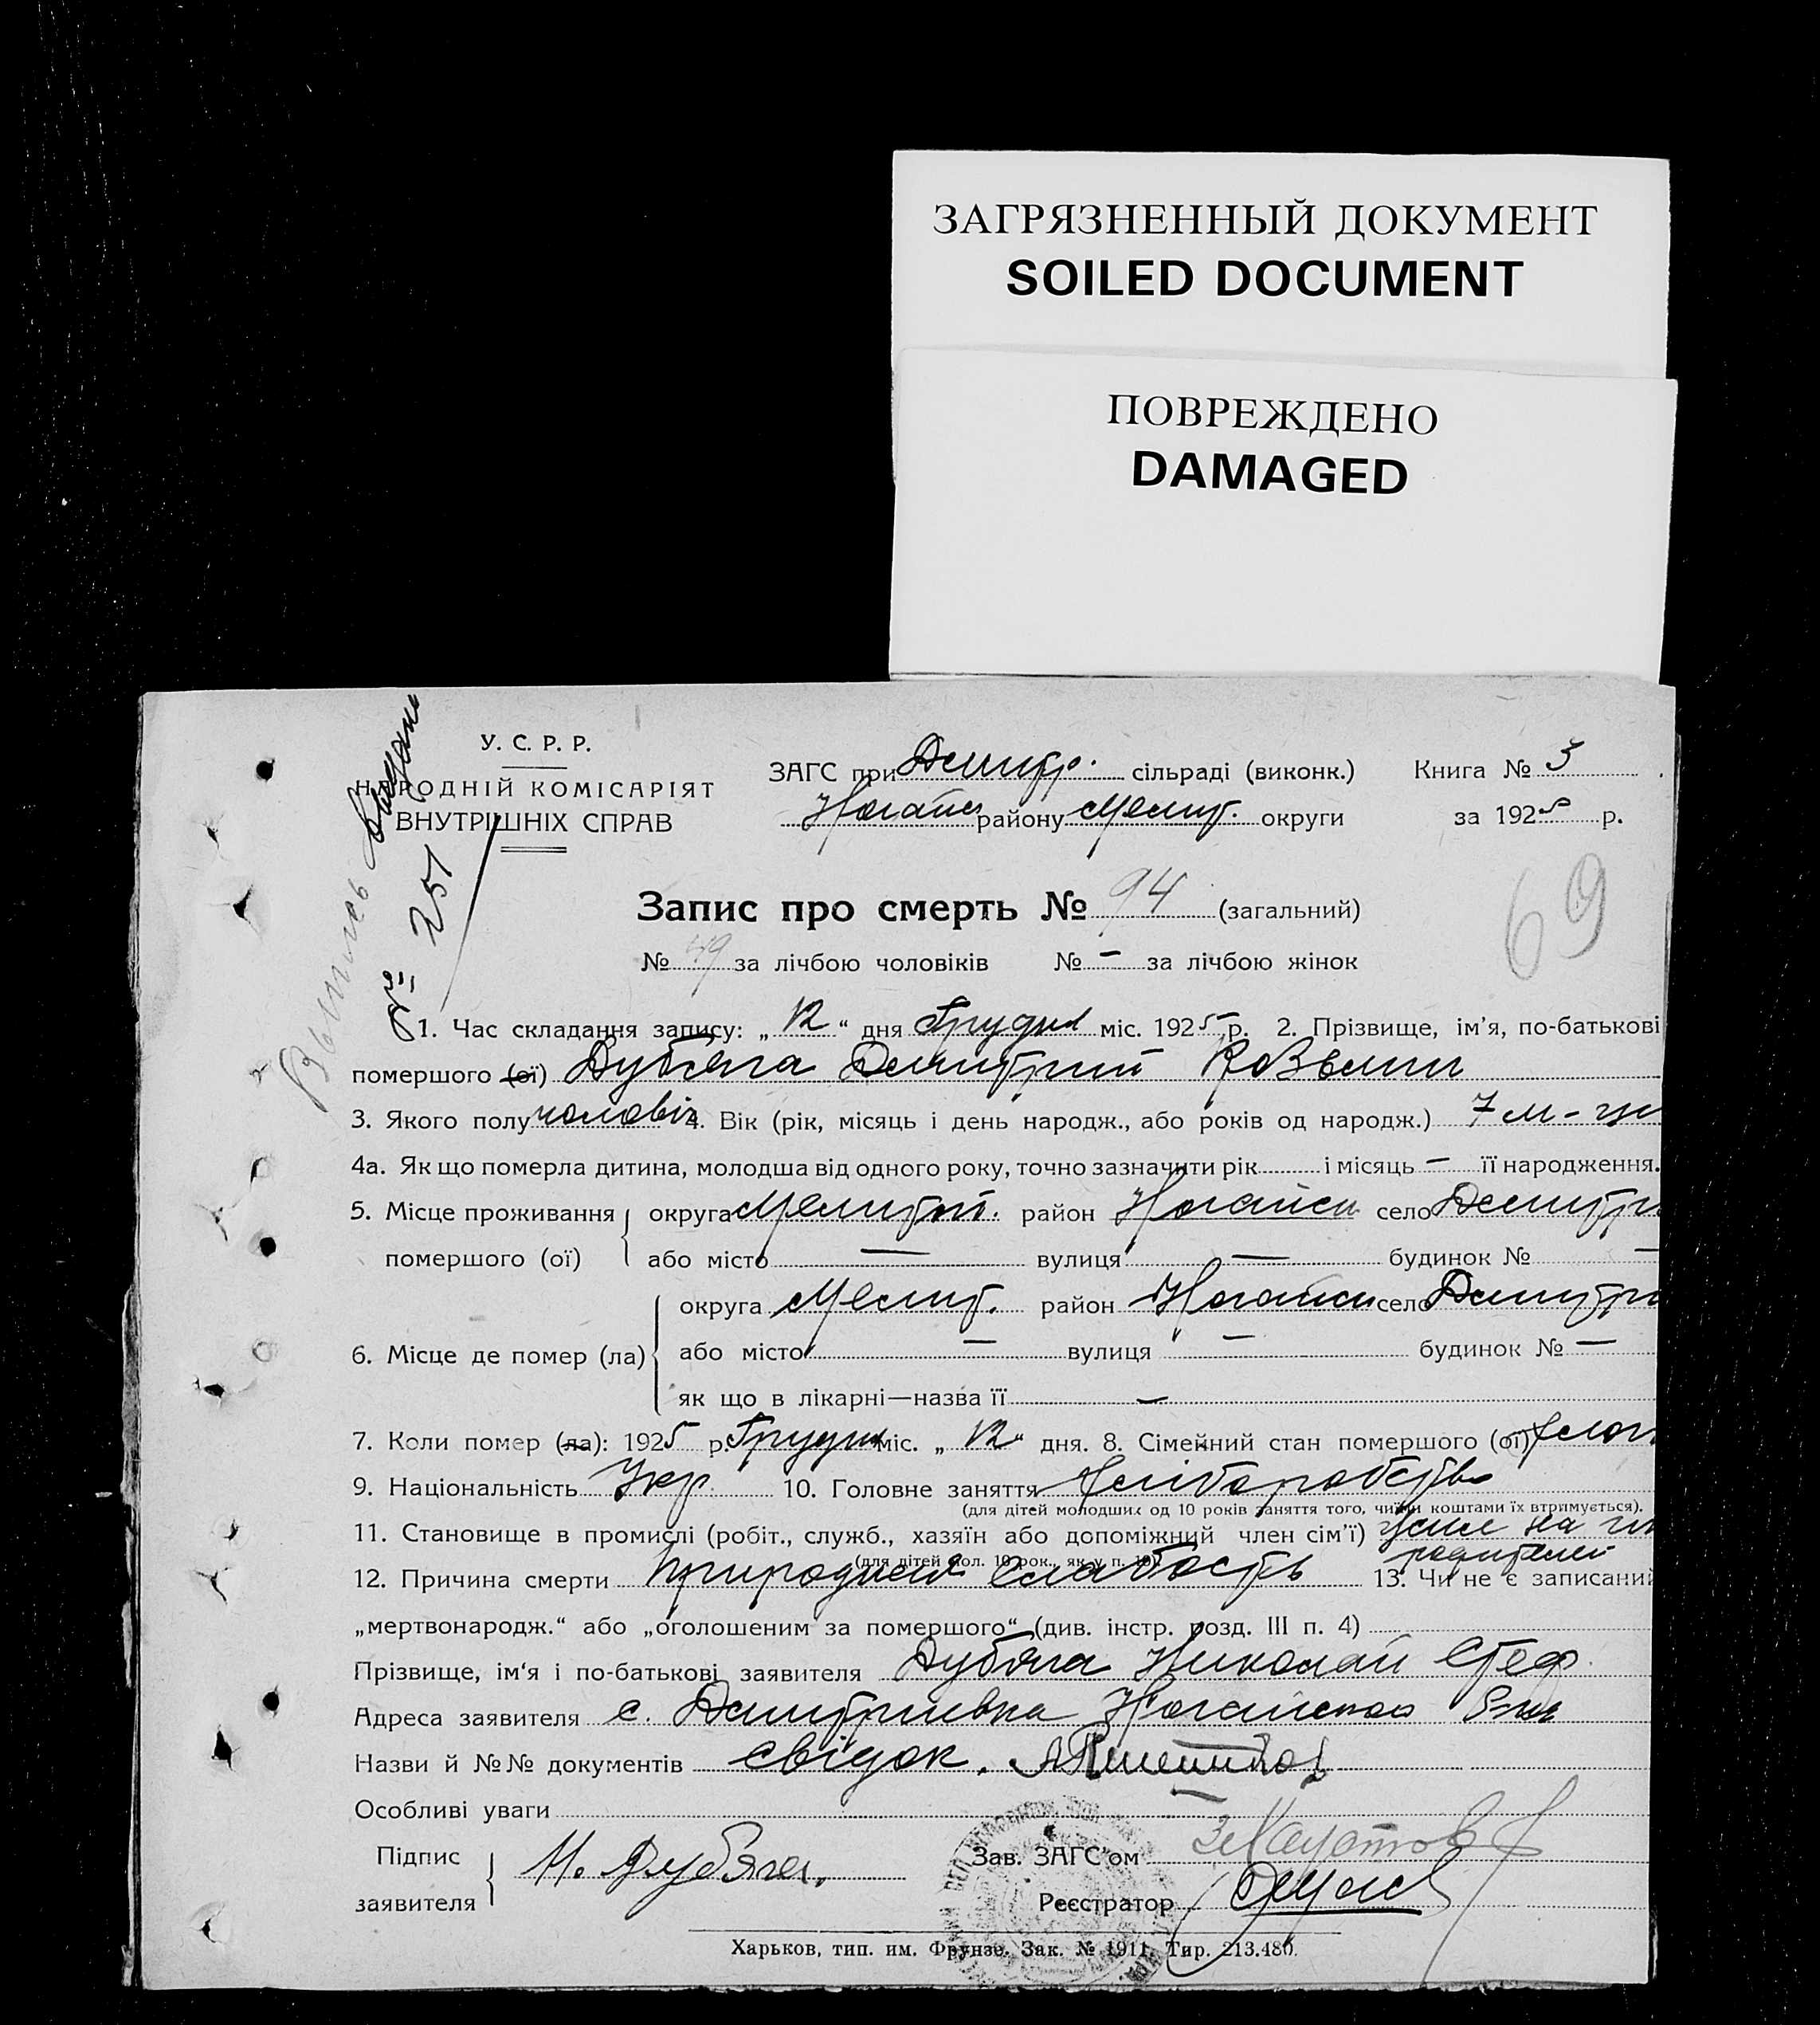 ЗАГРЯЗНЕННЫЙ ДОКУМЕНТ
SOILED DOCUMENT
ПОВРЕЖДЕНО
DAMAGED
У. С. Р. Р.
НАРОДНІЙ КОМІСАРІЯТ
ВНУТРІШНІХ СПРАВ
Выпись выдана
№ 251
ЗАГС при Дмитр. сільраді (виконк.) Книга № 3
Ногайс району Мелит. округи за 1925 р.
69
Запис про смерть № 94 (загальний)
№ 49 за лічбою чоловіків № — за лічбою жінок
1. Час складання запису: „ 12 “ дня Грудня міс. 1925 р. 2. Прізвище, ім’я, по-батькові
помершого (ої) Дубяга Дмитрий Козьмич
3. Якого полу чоловіч 4. Вік (рік, місяць і день народж., або років од народж.) 7 м-ци
4а. Як що померла дитина, молодша від одного року, точно зазначити рік і місяць — її народження.
5. Місце проживання округа Мелитоп. район Ногайск село Дмитри
помершого (ої) або місто — вулиця — будинок № —
округа Мелит. район Ногайск село Дмитри
6. Місце де помер (ла) або місто — вулиця — будинок № —
як що в лікарні—назва її —
7. Коли помер (ла): 1925 р. Грудня міс. „ 12 “ дня. 8. Сімейний стан помершого (ої) холос
9. Національність Укр. 10. Головне заняття хліборобство
(для дітей молодших од 10 років заняття того, чиїми коштами їх втримується).
11. Становище в промислі (робіт., служб., хазяїн або допоміжний член сім’ї) на
(для дітей мол. 10 рок., як у п. 10). родителей
12. Причина смерти природная слабость 13. Чи не є записаний
„мертвонародж.“ або „оголошеним за помершого“ (див. інстр. розд. III п. 4)
Прізвище, ім‘я і по-батькові заявителя Дубяга Николай Стеф.
Адреса заявителя с. Дмитриевка Ногайского
Назви й №№ документів Свідок.
Особливі уваги
Підпис Н. Дубяга. Зав. ЗАГС’ом
заявителя Реєстратор
Харьков, тип. им. Фрунзе. Зак. № 1911. Тир. 213.480.